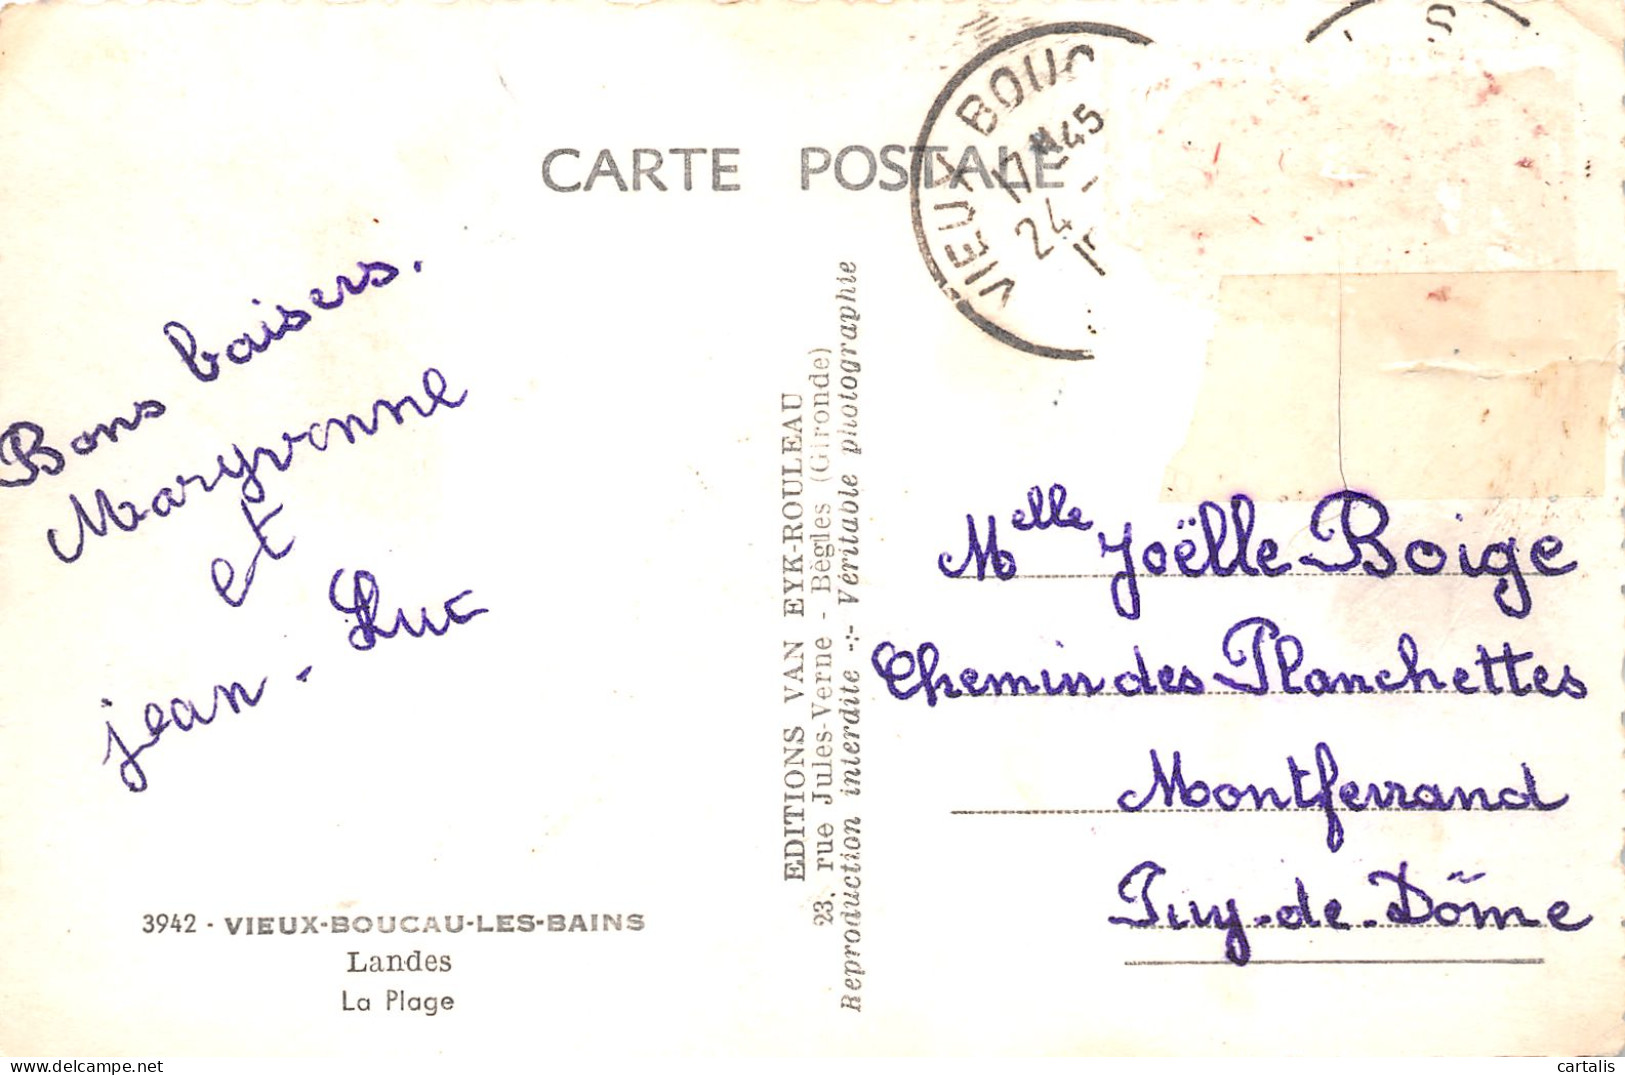 CARTE POSTALE
VIEUX BOUC
17 H 45
24 -
S
Bons baisers.
Maryvonne
et
jean-Luc
EDITIONS VAN EYK-ROULEAU
23, rue Jules-Verne - Bègles (Gironde)
Reproduction interdite -:- Véritable photographie
Melle Joëlle Boige
Chemin des Planchettes
Montferrand
Puy-de-Dôme
3942 - VIEUX-BOUCAU-LES-BAINS
Landes
La Plage
delcampe.net
cartalis